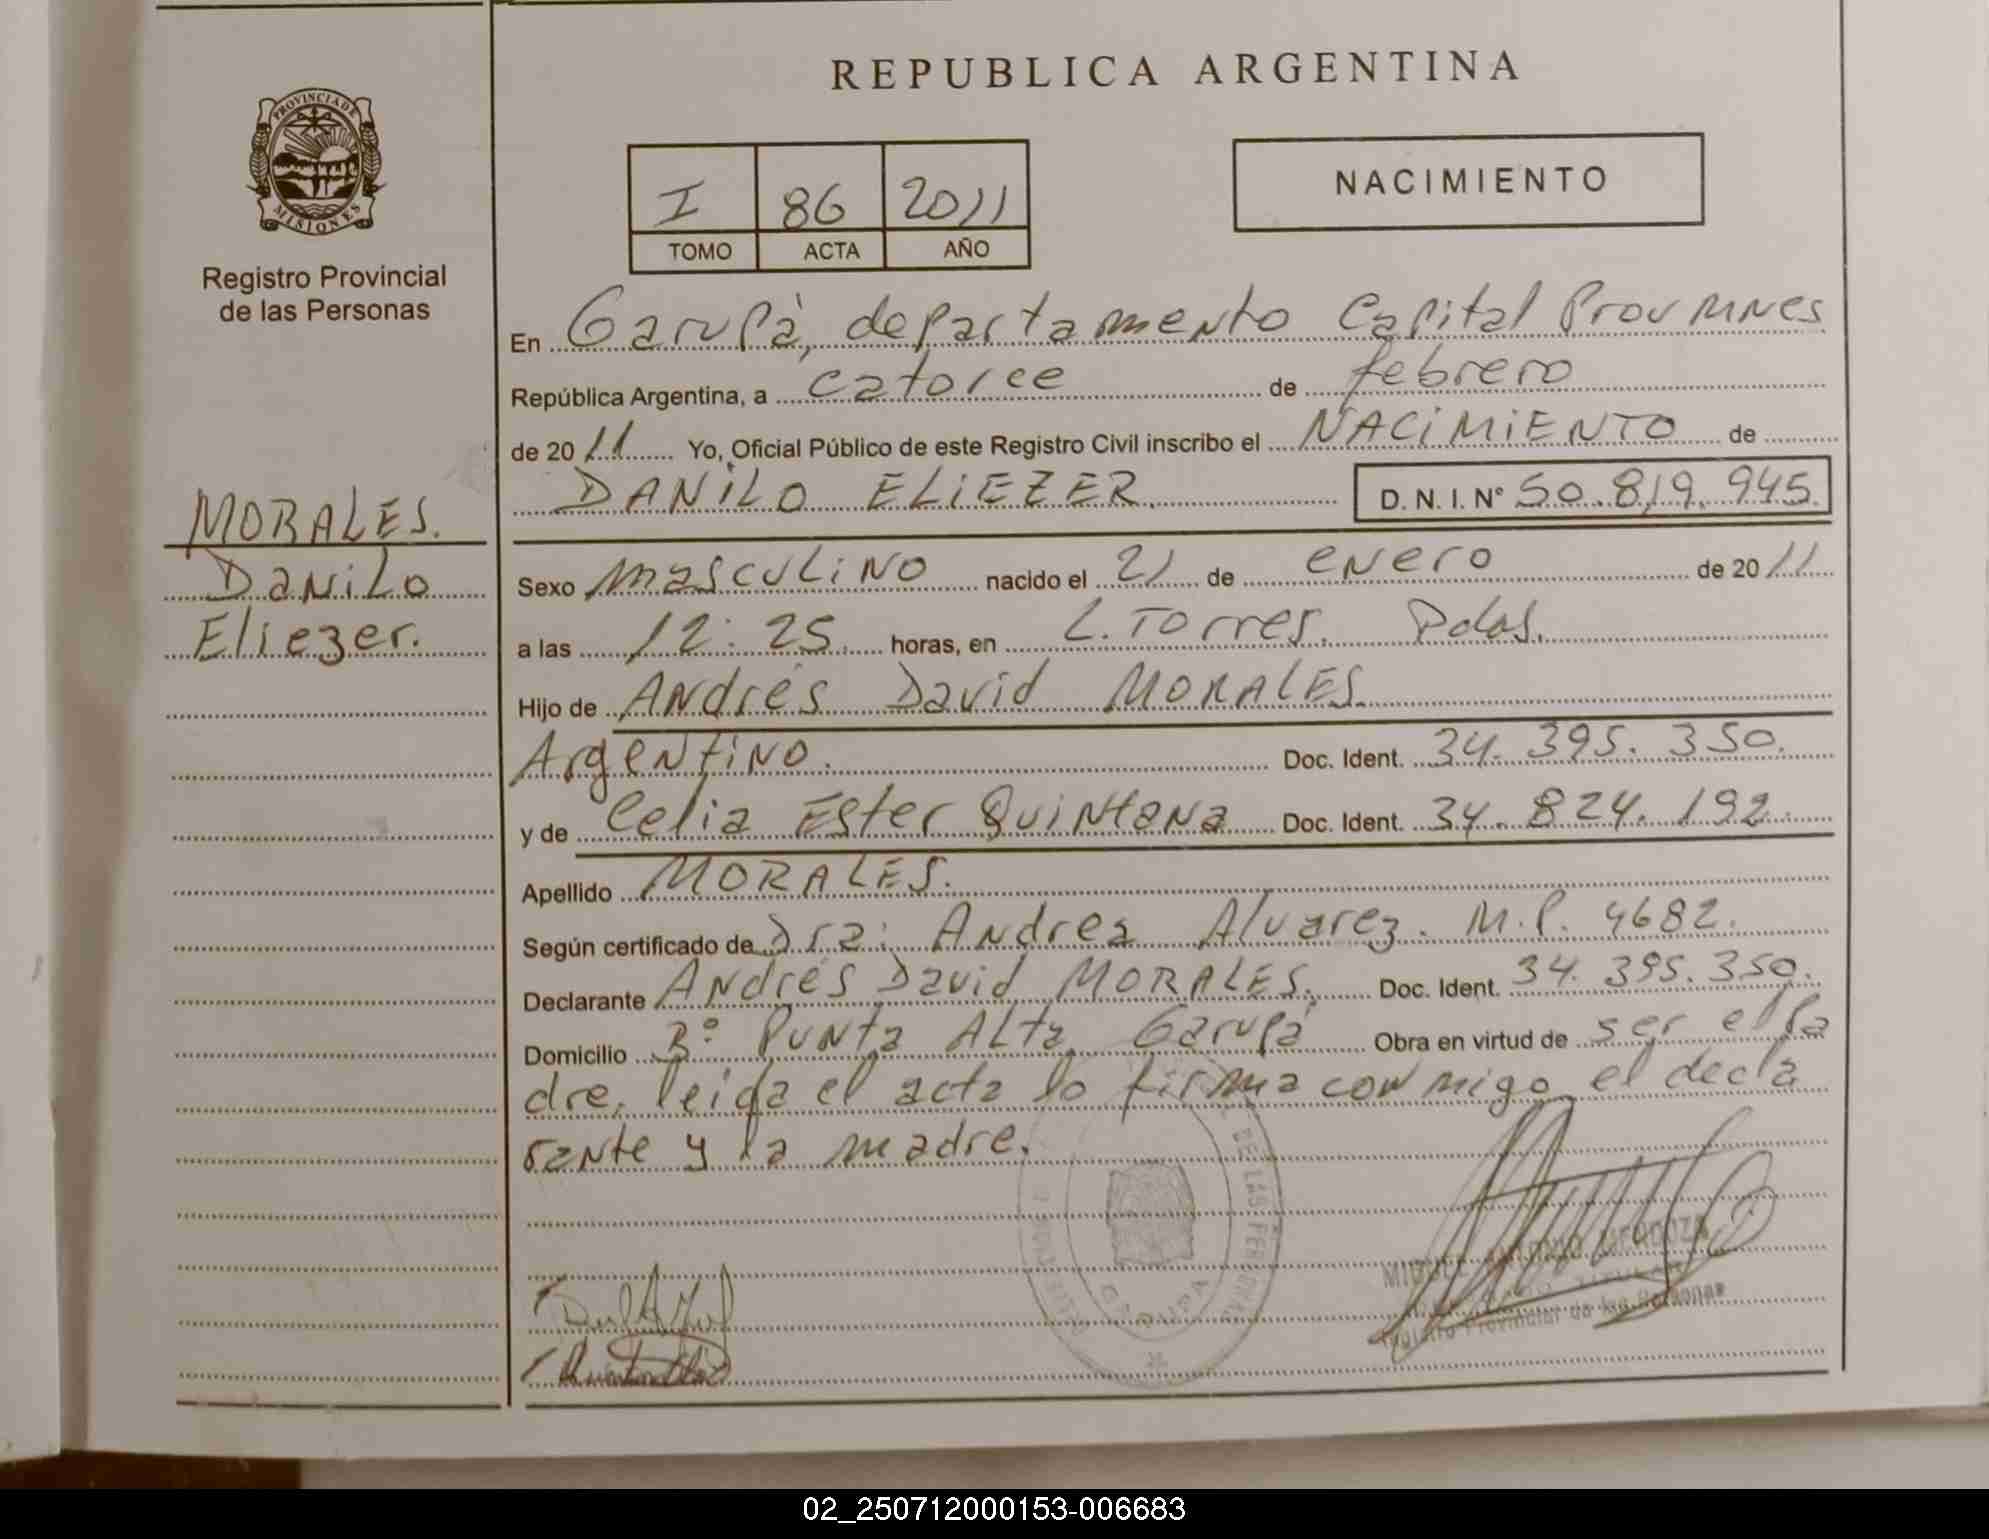 REPUBLICA ARGENTINA
PROVINCIA DE
MISIONES
Registro Provincial
de las Personas
I 86 2011
TOMO ACTA AÑO
NACIMIENTO
En Garupá, departamento Capital Prov Mnes
República Argentina, a catorce de febrero
de 2011 Yo, Oficial Público de este Registro Civil inscribo el NACIMIENTO de
DANILO ELIEZER. D. N. I. Nº 50.819.945.
MORALES.
Danilo
Eliezer.
Sexo masculino nacido el 21 de enero de 2011
a las 12:25 horas, en L. Torres. Pdas.
Hijo de Andrés David MORALES.
Argentino. Doc. Ident. 34.395.350.
y de Celia Ester Quintana Doc. Ident. 34.824.192.
Apellido MORALES.
Según certificado de Dra: Andrea Alvarez. M.P. 4682.
Declarante Andrés David MORALES. Doc. Ident. 34.395.350.
Domicilio Bº Punta Alta Garupá Obra en virtud de ser el pa
dre, leida el acta lo firma conmigo el decla
rante y la madre.
DE LAS PERSONAS
GARUPA
MIGUEL ANTONIO MENDOZA
Registro Provincial de las Personas
02_250712000153-006683